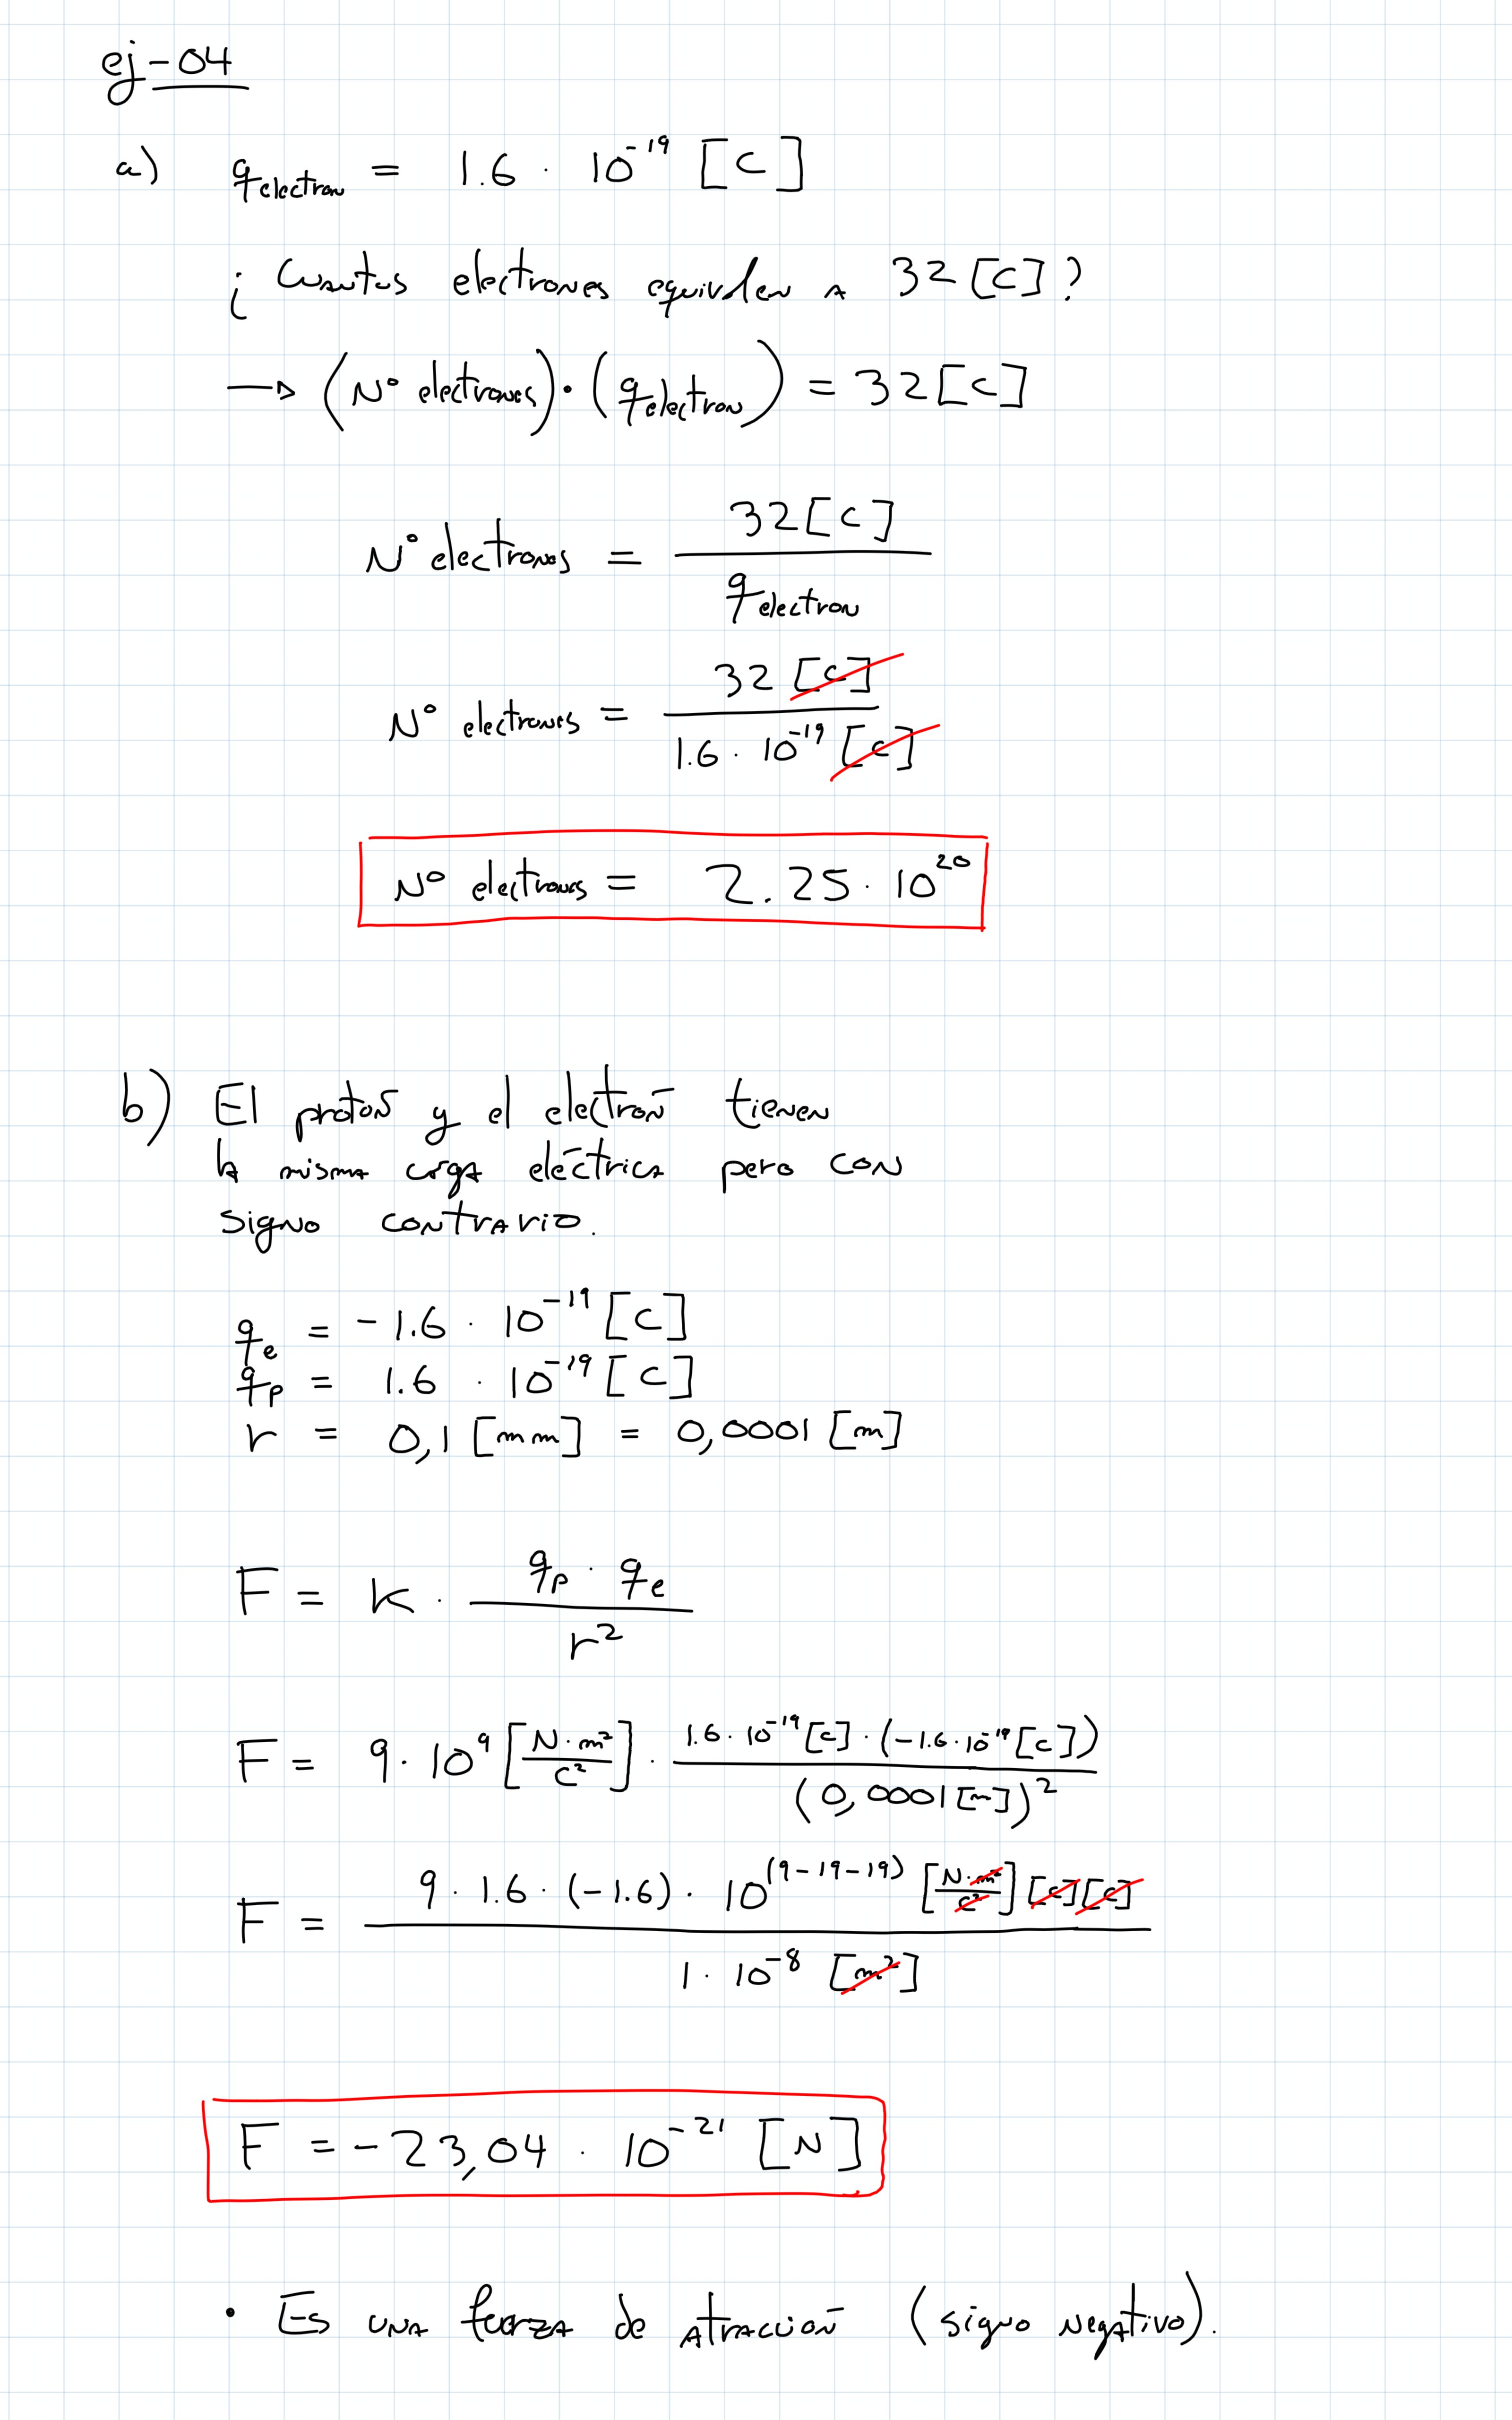 ej-04
a) q electron = 1.6 · 10⁻¹⁹ [C]
¿ Cuantos electrones equivalen a 32 [C]?
→ (N° electrones) · (q electron) = 32 [C]
N° electrones = 32 [C] / q electron
N° electrones = 32 [C] / 1.6 · 10⁻¹⁹ [C]
N° electrones = 2.25 · 10²⁰
b) El protón y el electrón tienen
la misma carga eléctrica pero con
signo contrario.
qₑ = -1.6 · 10⁻¹⁹ [C]
qₚ = 1.6 · 10⁻¹⁹ [C]
r = 0,1 [mm] = 0,0001 [m]
F = K · qₚ · qₑ / r²
F = 9 · 10⁹ [N · m² / C²] · 1.6 · 10⁻¹⁹ [C] · (-1.6 · 10⁻¹⁹ [C]) / (0,0001 [m])²
F = 9 · 1.6 · (-1.6) · 10⁽⁹⁻¹⁹⁻¹⁹⁾ [N · m² / C²] [C] [C] / 1 · 10⁻⁸ [m²]
F = -23,04 · 10⁻²¹ [N]
• Es una fuerza de atracción (signo negativo).